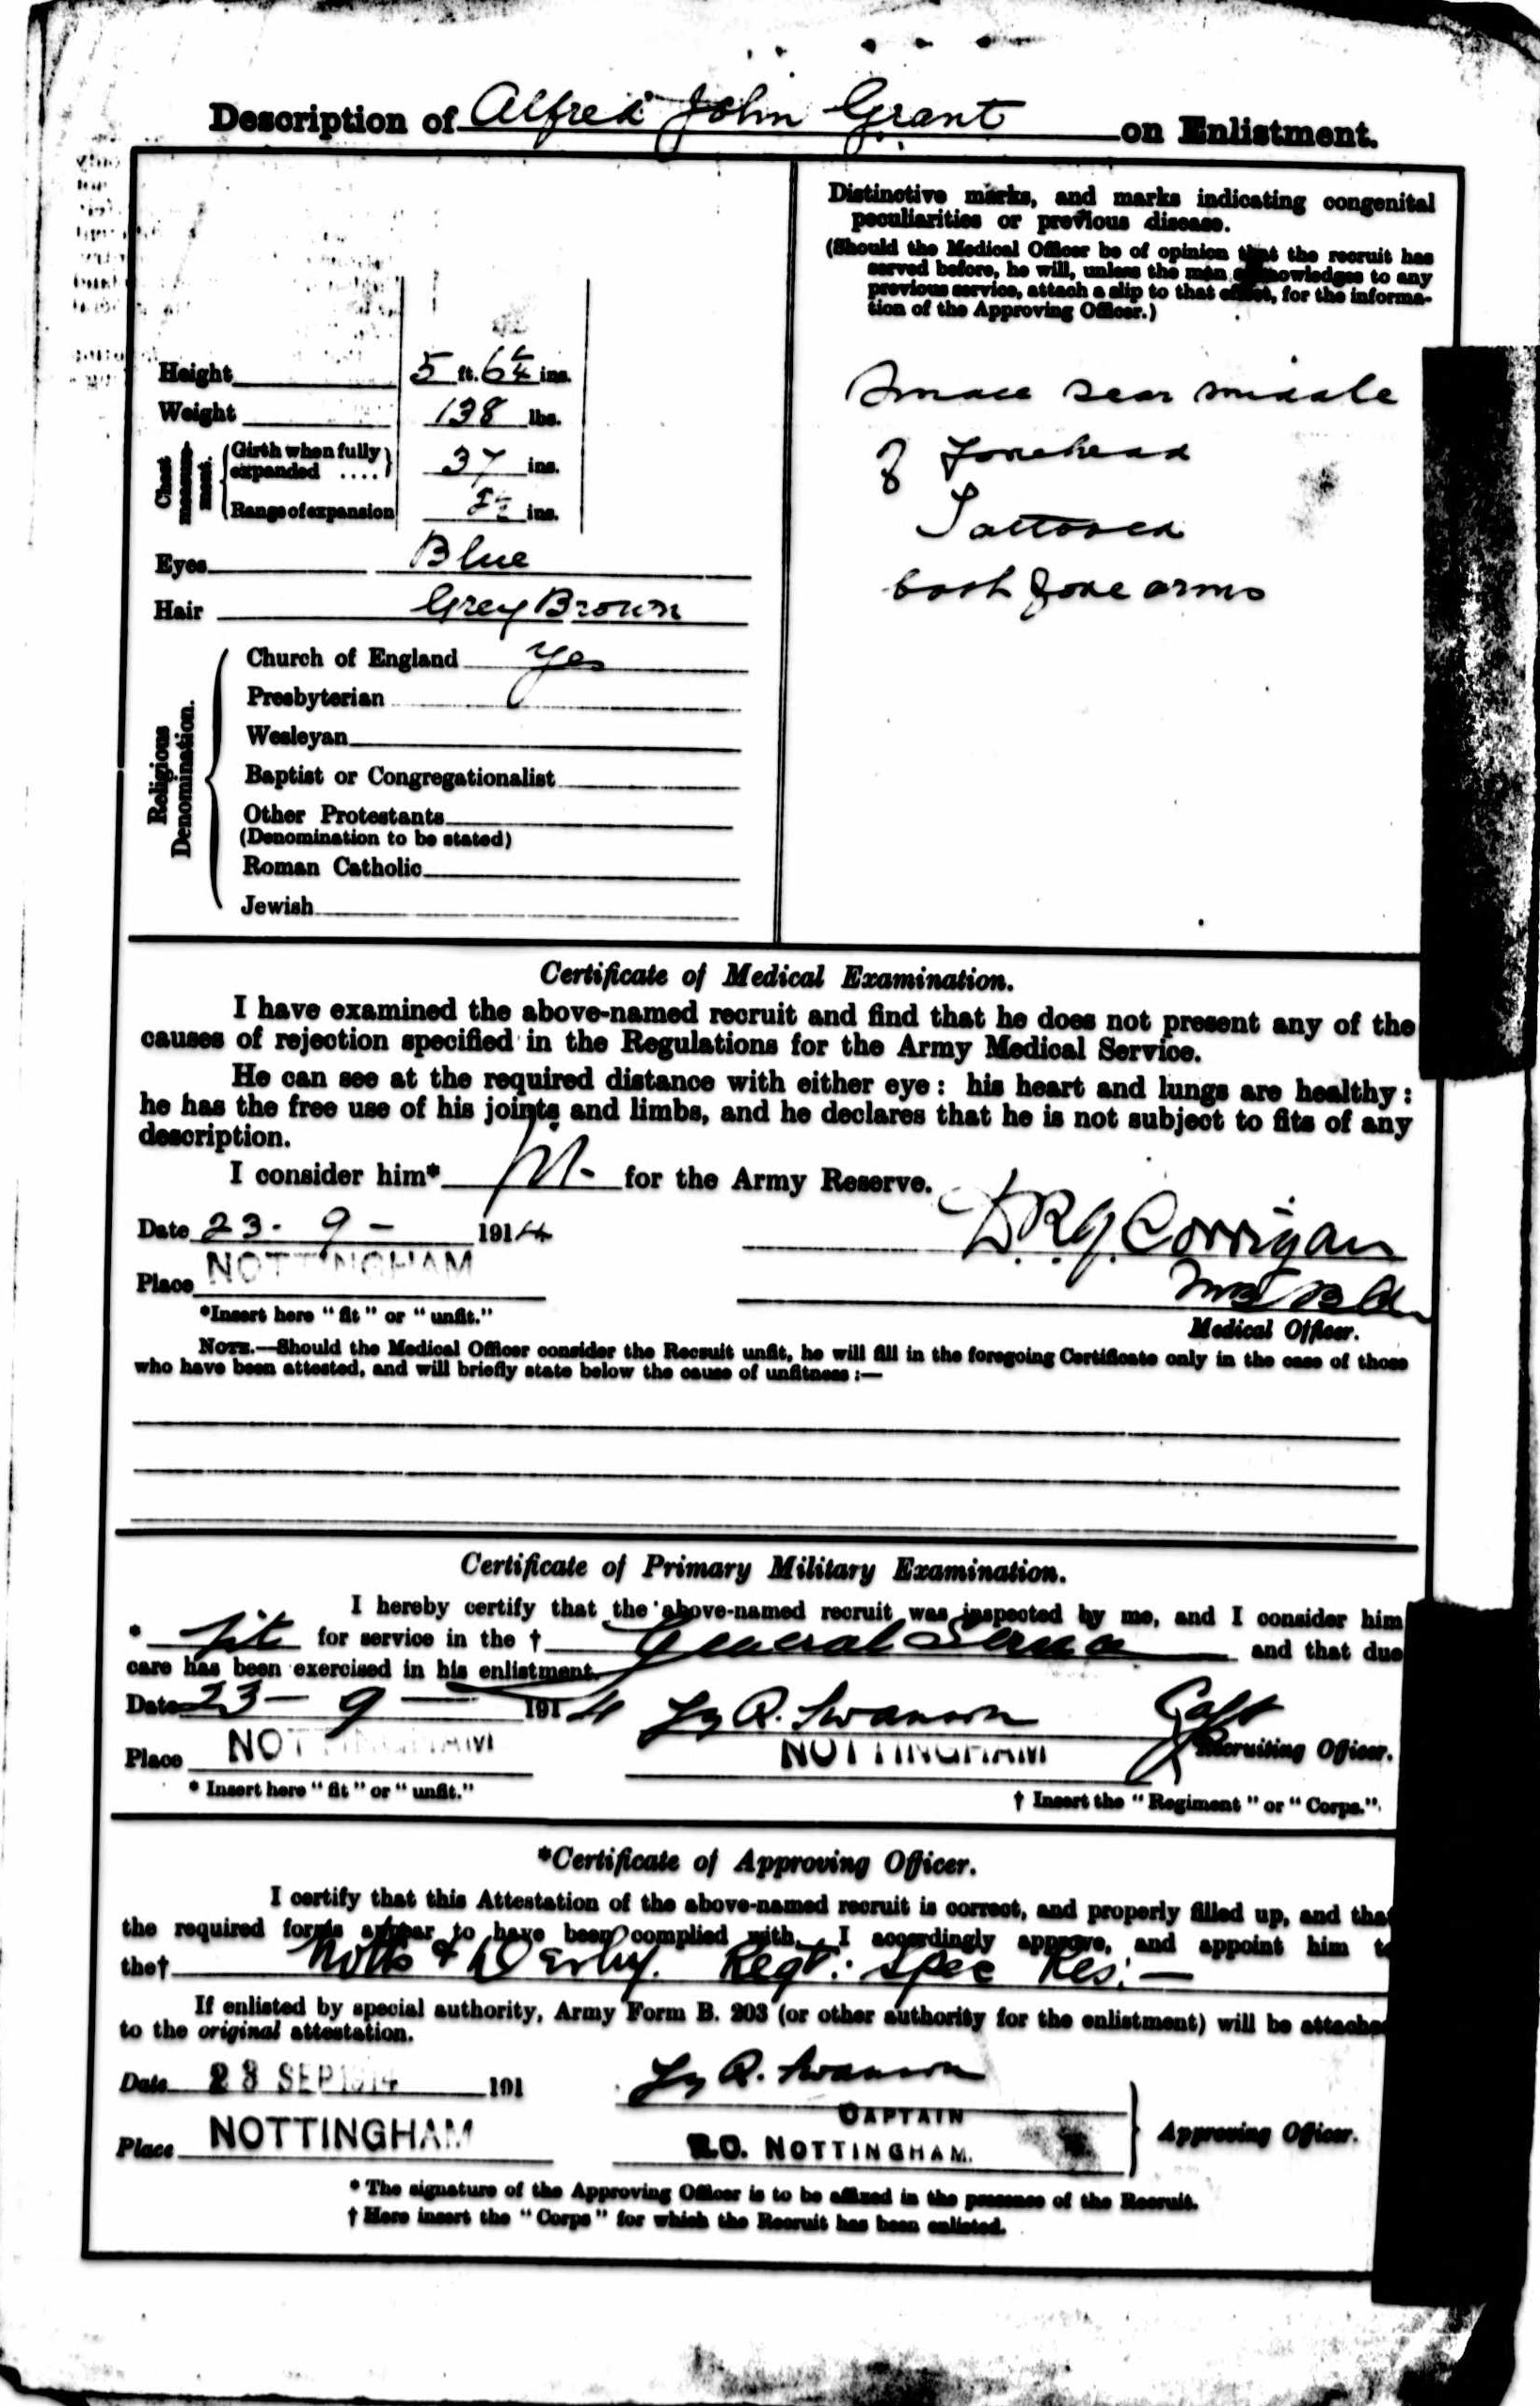 Description of Alfred John Grant on Enlistment.
Distinctive marks, and marks indicating congenital
peculiarities or previous disease.
(Should the Medical Officer be of opinion that the recruit has
served before, he will, unless the man acknowledges to any
previous service, attach a slip to that effect, for the informa-
tion of the Approving Officer.)
Height 5 ft. 6 ins.
Weight 138 lbs.
Chest measure-ment.
Girth when fully
expanded .... 37 ins.
Range of expansion ins.
Eyes Blue
Hair Grey Brown
Small scar middle
of forehead
Tattooed
both fore arms
Religious Denomination.
Church of England yes
Presbyterian
Wesleyan
Baptist or Congregationalist
Other Protestants
(Denomination to be stated)
Roman Catholic
Jewish
Certificate of Medical Examination.
I have examined the above-named recruit and find that he does not present any of the
causes of rejection specified in the Regulations for the Army Medical Service.
He can see at the required distance with either eye: his heart and lungs are healthy:
he has the free use of his joints and limbs, and he declares that he is not subject to fits of any
description.
I consider him* fit for the Army Reserve.
Date 23 - 9 - 1914 Corrigan
Place NOTTINGHAM
*Insert here "fit" or "unfit."
Medical Officer.
NOTE.—Should the Medical Officer consider the Recruit unfit, he will fill in the foregoing Certificate only in the case of those
who have been attested, and will briefly state below the cause of unfitness:—
Certificate of Primary Military Examination.
I hereby certify that the above-named recruit was inspected by me, and I consider him
* fit for service in the † General Service and that due
care has been exercised in his enlistment.
Date 23 - 9 - 1914 Swanson Capt
Place NOTTINGHAM NOTTINGHAM Recruiting Officer.
* Insert here "fit" or "unfit."
† Insert the "Regiment" or "Corps."
*Certificate of Approving Officer.
I certify that this Attestation of the above-named recruit is correct, and properly filled up, and that
the required forms appear to have been complied with. I accordingly approve, and appoint him to
the† Notts & Derby. Regt: Spec Res: —
If enlisted by special authority, Army Form B. 203 (or other authority for the enlistment) will be attached
to the original attestation.
Date 23 SEP 1914 191 Swanson
CAPTAIN
Place NOTTINGHAM R.O. NOTTINGHAM. Approving Officer.
* The signature of the Approving Officer is to be affixed in the presence of the Recruit.
† Here insert the "Corps" for which the Recruit has been enlisted.